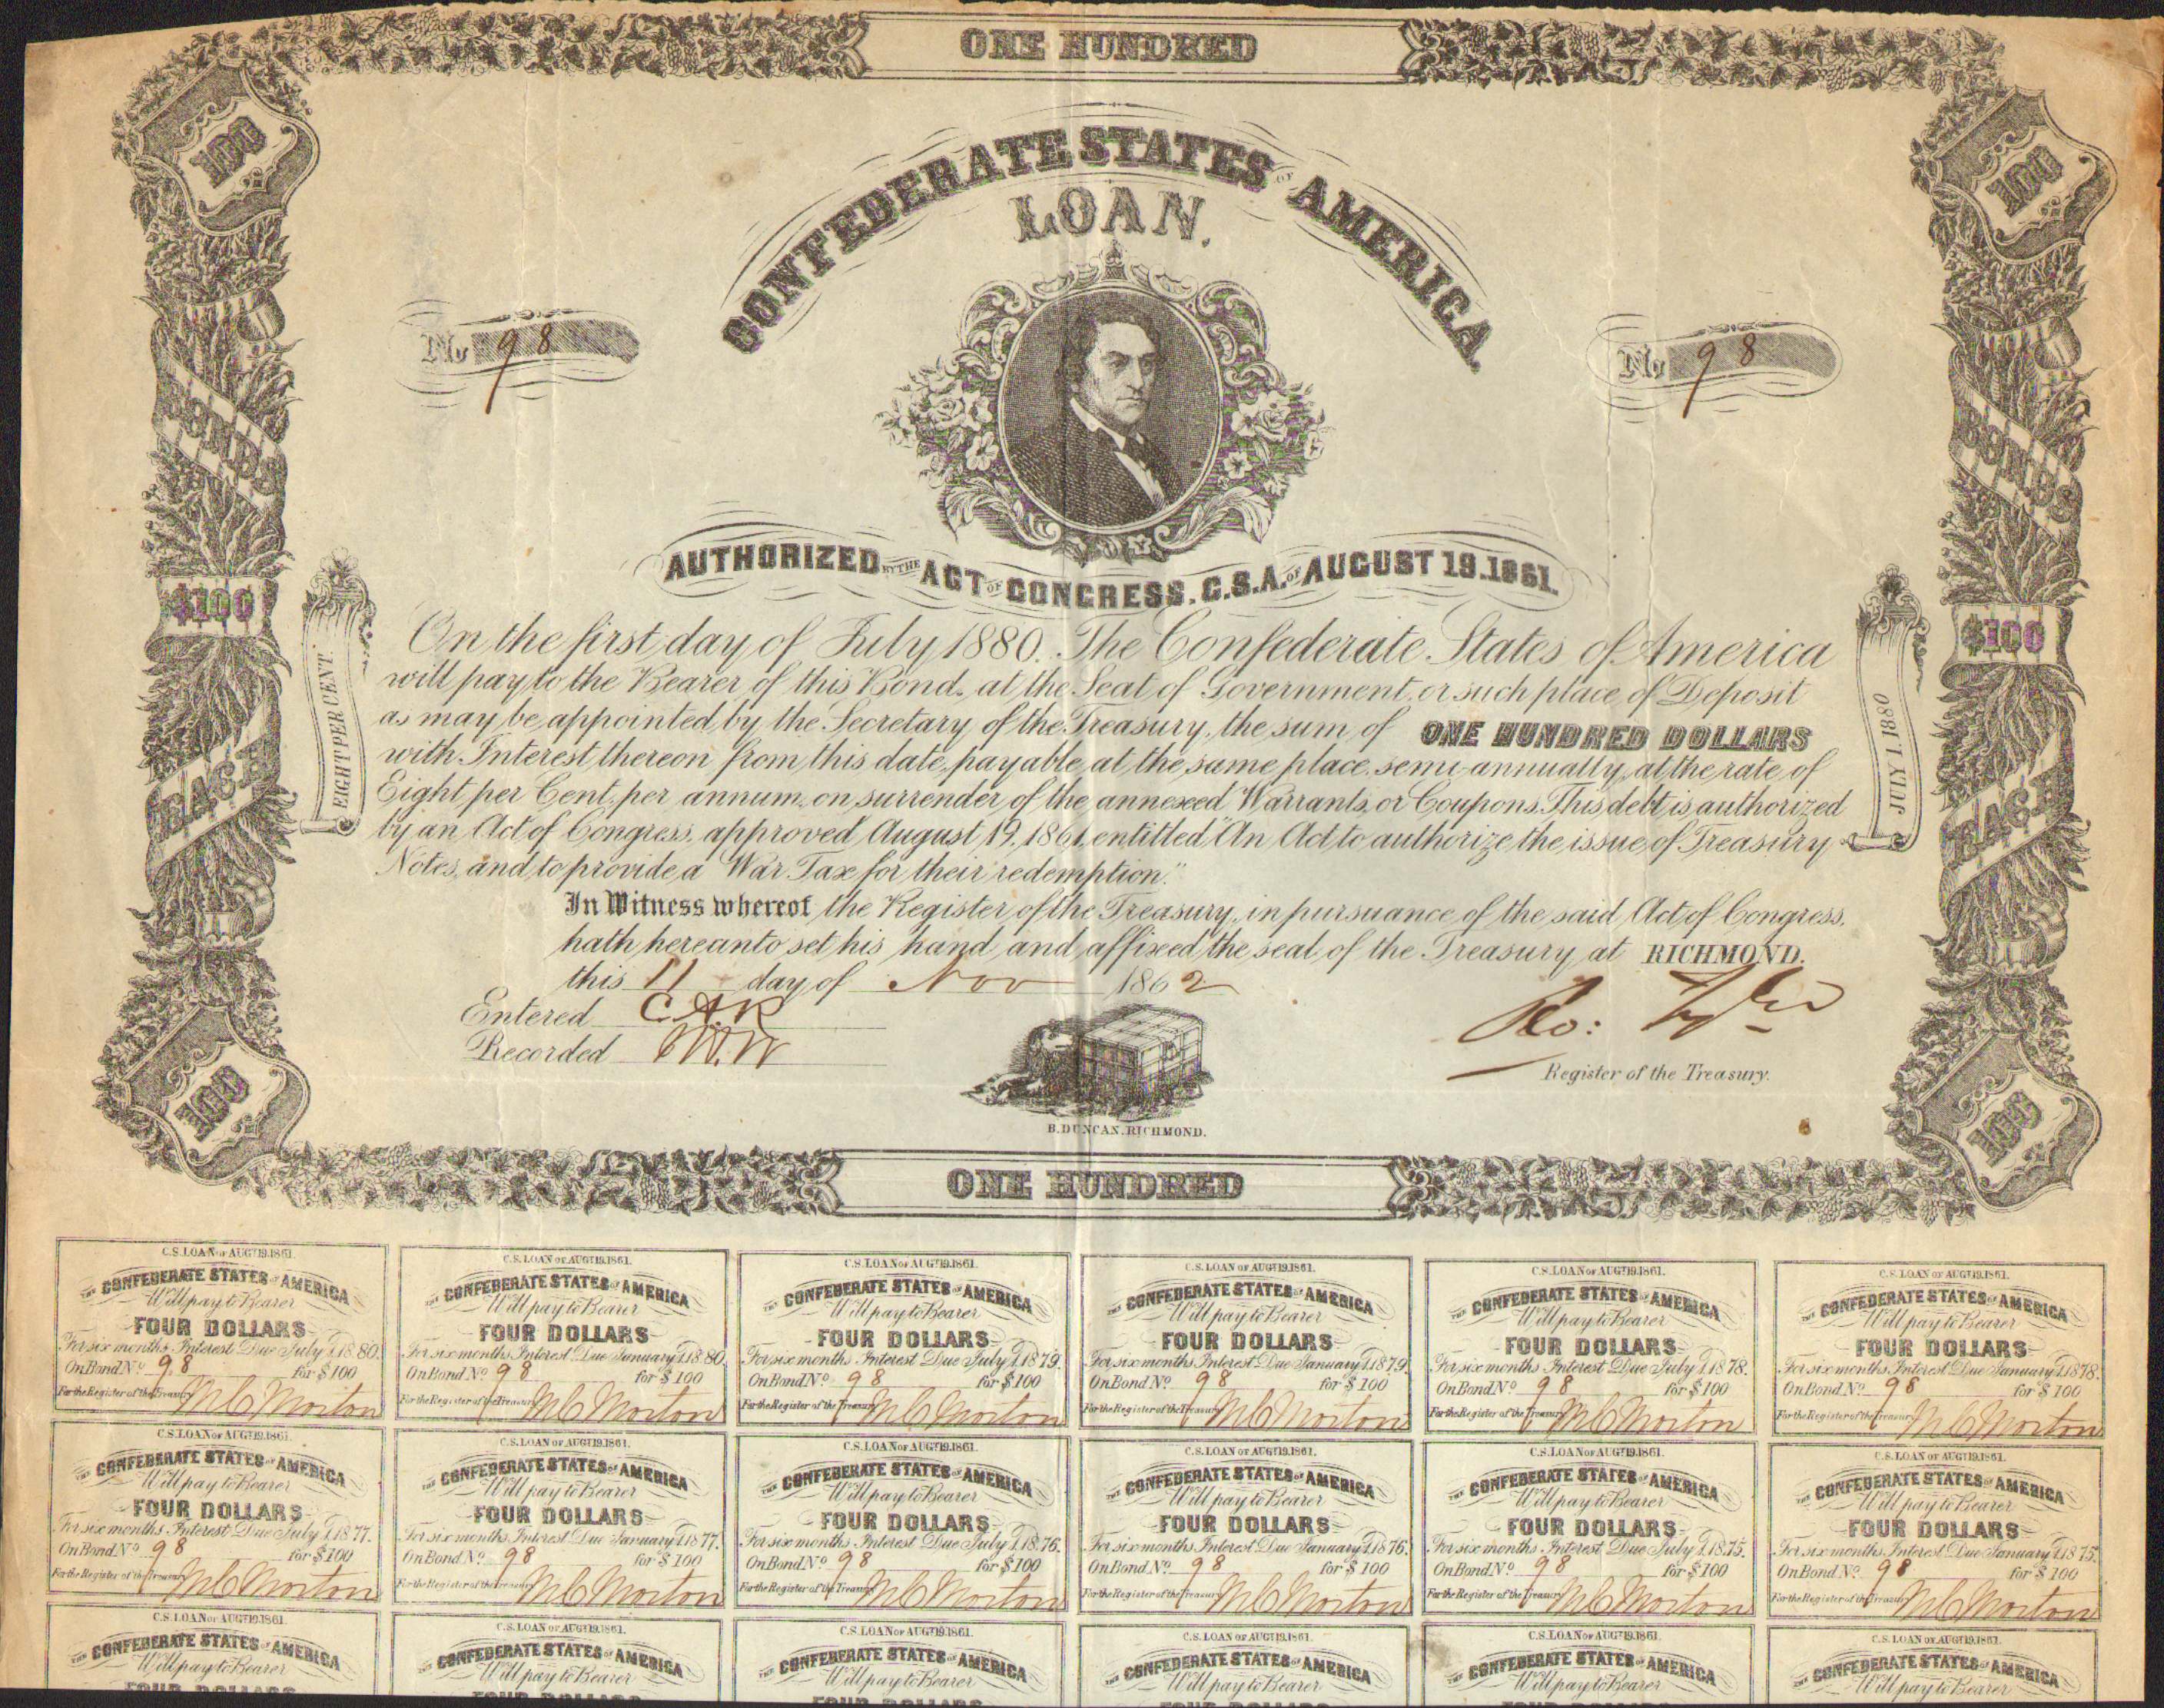 ONE HUNDRED
100
100
CONFEDERATE STATES OF AMERICA.
LOAN.
No 98
No 98
BONDS
BONDS
AUTHORIZED BY THE ACT OF CONGRESS. C.S.A. OF AUGUST 19.1861.
$100
$100
EIGHT PER CENT.
JULY 1. 1880
EACH
EACH
On the first day of July 1880. The Confederate States of America
will pay to the Bearer of this Bond, at the Seat of Government, or such place of Deposit
as may be appointed by the Secretary of the Treasury, the sum of ONE HUNDRED DOLLARS
with Interest thereon from this date, payable at the same place, semi-annually, at the rate of
Eight per Cent. per annum, on surrender of the annexed Warrants, or Coupons. This debt is authorized
by an Act of Congress, approved August 19. 1861, entitled "An Act to authorize the issue of Treasury
Notes, and to provide a War Tax for their redemption."
In Witness whereof the Register of the Treasury, in pursuance of the said Act of Congress,
hath hereunto set his hand and affixed the seal of the Treasury at RICHMOND.
this 11 day of Nov 1862
Entered C.A.R
Recorded
Ro: Tyler
Register of the Treasury.
100
100
B. DUNCAN. RICHMOND.
ONE HUNDRED
C.S. LOAN OF AUGT 19.1861.
THE CONFEDERATE STATES OF AMERICA
Will pay to Bearer
FOUR DOLLARS
For six months Interest Due July 1.1880.
On Bond No 98 for $100
For the Register of the Treasury M C Morton
C.S. LOAN OF AUGT 19.1861.
THE CONFEDERATE STATES OF AMERICA
Will pay to Bearer
FOUR DOLLARS
For six months Interest Due January 1.1880.
On Bond No 98 for $100
For the Register of the Treasury M C Morton
C.S. LOAN OF AUGT 19.1861.
THE CONFEDERATE STATES OF AMERICA
Will pay to Bearer
FOUR DOLLARS
For six months Interest Due July 1.1879.
On Bond No 98 for $100
For the Register of the Treasury M C Morton
C.S. LOAN OF AUGT 19.1861.
THE CONFEDERATE STATES OF AMERICA
Will pay to Bearer
FOUR DOLLARS
For six months Interest Due January 1.1879.
On Bond No 98 for $100
For the Register of the Treasury M C Morton
C.S. LOAN OF AUGT 19.1861.
THE CONFEDERATE STATES OF AMERICA
Will pay to Bearer
FOUR DOLLARS
For six months Interest Due July 1.1878.
On Bond No 98 for $100
For the Register of the Treasury M C Morton
C.S. LOAN OF AUGT 19.1861.
THE CONFEDERATE STATES OF AMERICA
Will pay to Bearer
FOUR DOLLARS
For six months Interest Due January 1.1878.
On Bond No 98 for $100
For the Register of the Treasury M C Morton
C.S. LOAN OF AUGT 19.1861.
THE CONFEDERATE STATES OF AMERICA
Will pay to Bearer
FOUR DOLLARS
For six months Interest Due July 1.1877.
On Bond No 98 for $100
For the Register of the Treasury M C Morton
C.S. LOAN OF AUGT 19.1861.
THE CONFEDERATE STATES OF AMERICA
Will pay to Bearer
FOUR DOLLARS
For six months Interest Due January 1.1877.
On Bond No 98 for $100
For the Register of the Treasury M C Morton
C.S. LOAN OF AUGT 19.1861.
THE CONFEDERATE STATES OF AMERICA
Will pay to Bearer
FOUR DOLLARS
For six months Interest Due July 1.1876.
On Bond No 98 for $100
For the Register of the Treasury M C Morton
C.S. LOAN OF AUGT 19.1861.
THE CONFEDERATE STATES OF AMERICA
Will pay to Bearer
FOUR DOLLARS
For six months Interest Due January 1.1876.
On Bond No 98 for $100
For the Register of the Treasury M C Morton
C.S. LOAN OF AUGT 19.1861.
THE CONFEDERATE STATES OF AMERICA
Will pay to Bearer
FOUR DOLLARS
For six months Interest Due July 1.1875.
On Bond No 98 for $100
For the Register of the Treasury M C Morton
C.S. LOAN OF AUGT 19.1861.
THE CONFEDERATE STATES OF AMERICA
Will pay to Bearer
FOUR DOLLARS
For six months Interest Due January 1.1875.
On Bond No 98 for $100
For the Register of the Treasury M C Morton
C.S. LOAN OF AUGT 19.1861.
THE CONFEDERATE STATES OF AMERICA
Will pay to Bearer
FOUR DOLLARS
C.S. LOAN OF AUGT 19.1861.
THE CONFEDERATE STATES OF AMERICA
Will pay to Bearer
FOUR DOLLARS
C.S. LOAN OF AUGT 19.1861.
THE CONFEDERATE STATES OF AMERICA
Will pay to Bearer
FOUR DOLLARS
C.S. LOAN OF AUGT 19.1861.
THE CONFEDERATE STATES OF AMERICA
Will pay to Bearer
FOUR DOLLARS
C.S. LOAN OF AUGT 19.1861.
THE CONFEDERATE STATES OF AMERICA
Will pay to Bearer
FOUR DOLLARS
C.S. LOAN OF AUGT 19.1861.
THE CONFEDERATE STATES OF AMERICA
Will pay to Bearer
FOUR DOLLARS